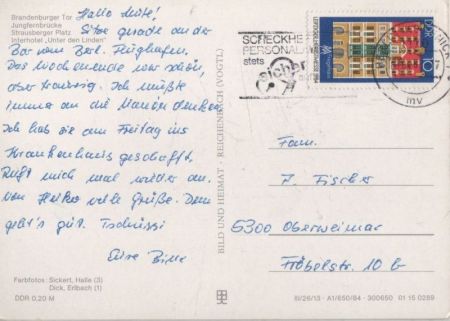 Brandenburger Tor
Jungfernbrücke
Strausberger Platz
Interhotel „Unter den Linden“
Hallo Leute!
Sitze gerade an der
Bar vom Berl. Flughafen.
Das Wochenende war schön,
aber traurig. Ich mußte
immer an die denken.
Ich hab sie am Freitag ins
Krankenhaus geschafft.
Ruft mich mal wieder an.
Von Heiko viele Grüße. Dem
geht's gut. Tschüssi
Eure
Farbfotos: Sickert, Halle (3)
Dick, Erlbach (1)
DDR 0,20 M
BILD UND HEIMAT · REICHENBACH (VOGTL)
SCHECKHE
PERSONAL
stets
sicher
DDR
10
mv
Fam.
J. Fischer
5300 Oberweimar
Fröbelstr. 10 b
III/26/13 · A1/650/84 · 300650 01 15 0289